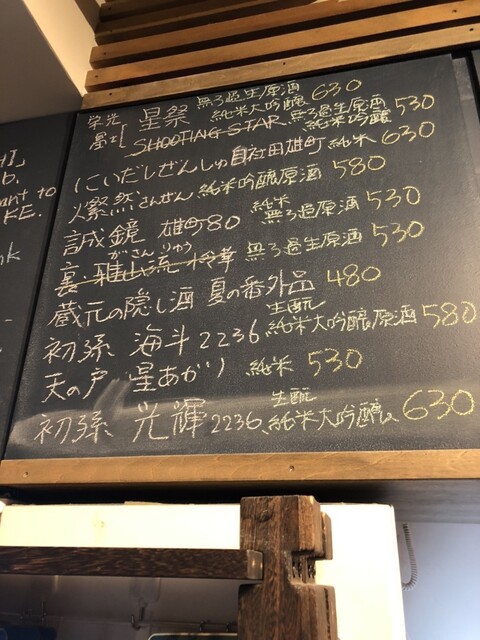 栄光 星祭 無ろ過生原酒 純米大吟醸 630
富士 SHOOTING STAR 無ろ過生原酒 純米吟醸 530
にいだしぜんしゅ 自社田雄町 純米 630
燦然 さんぜん 純米吟醸原酒 580
誠鏡 雄町80 純米 無ろ過原酒 530
裏・雅山流 がさんりゅう 華 無ろ過生原酒 530
蔵元の隠し酒 夏の番外品 480
初孫 海斗 2236 生酛 純米大吟醸原酒 580
天の戸 星あかり 純米 530
初孫 光輝 2236 生酛 純米大吟醸 630
ant to
KE.